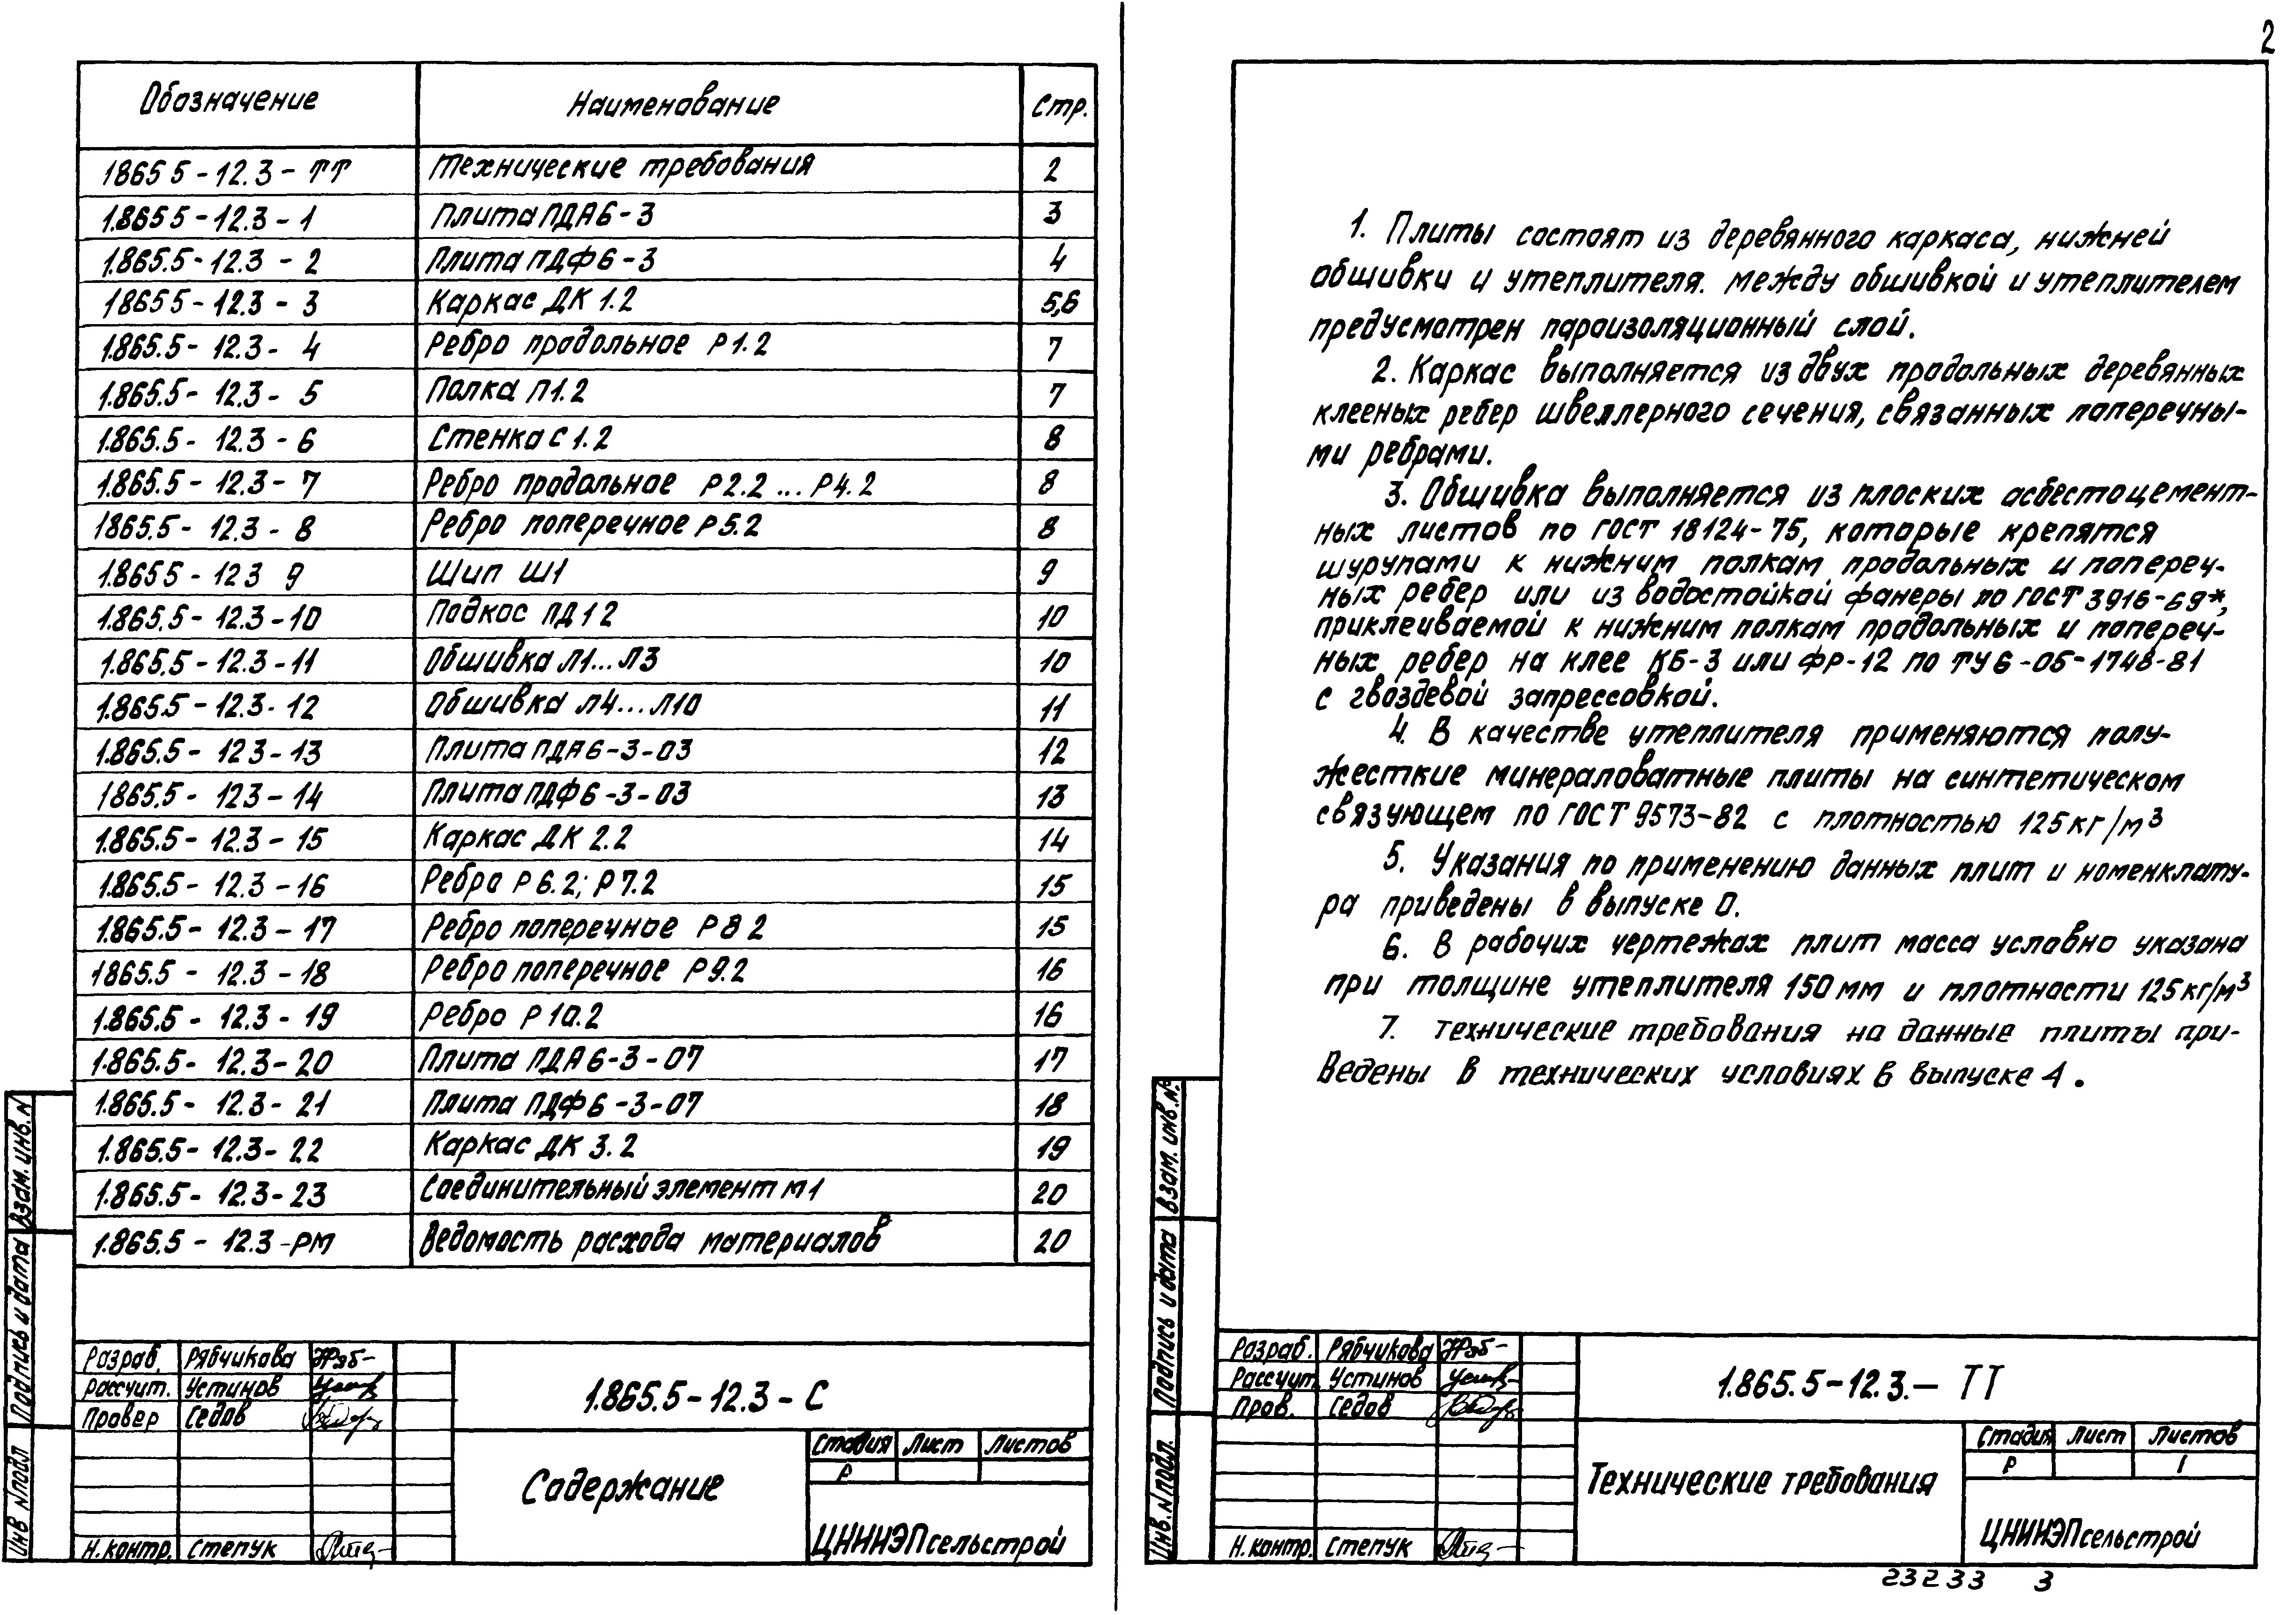 Обозначение Наименование Стр.
1.865 5-12.3-ТТ Технические требования 2
1.865 5-12.3-1 Плита ПДА6-3 3
1.865.5-12.3-2 Плита ПДФ6-3 4
1.865 5-12.3-3 Каркас ДК 1.2 5,6
1.865.5-12.3-4 Ребро продольное Р1.2 7
1.865.5-12.3-5 Полка П1.2 7
1.865.5-12.3-6 Стенка С1.2 8
1.865.5-12.3-7 Ребро продольное Р2.2...Р4.2 8
1865.5-12.3-8 Ребро поперечное Р5.2 8
1.865 5-12 3 9 Шип Ш1 9
1.865.5-12.3-10 Подкос ПД1 2 10
1.865.5-12.3-11 Обшивка Л1...Л3 10
1.865.5-12.3-12 Обшивка Л4...Л10 11
1.865.5-12 3-13 Плита ПДА6-3-03 12
1865.5-123-14 Плита ПДФ6-3-03 13
1.865.5-12.3-15 Каркас ДК 2.2 14
1.865.5-12.3-16 Ребра Р6.2; Р7.2 15
1.865.5-12.3-17 Ребро поперечное Р8 2 15
1865.5-12.3-18 Ребро поперечное Р9.2 16
1.865.5-12.3-19 Ребро Р10.2 16
1.865.5-12.3-20 Плита ПДА6-3-07 17
1.865.5-12.3-21 Плита ПДФ6-3-07 18
1.865.5-12.3-22 Каркас ДК 3.2 19
1.865.5-12.3-23 Соединительный элемент М1 20
1.865.5-12.3-РМ Ведомость расхода материалов 20
Взам. инв. N
Подпись и дата
Инв N подл
Разраб. Рябчикова
Рассчит. Устинов
Провер Седов
Н.контр. Степук
1.865.5-12.3-С
Содержание
Стадия Лист Листов
Р
ЦНИИЭПсельстрой
2
1. Плиты состоят из деревянного каркаса, нижней
обшивки и утеплителя. Между обшивкой и утеплителем
предусмотрен пароизоляционный слой.
2. Каркас выполняется из двух продольных деревянных
клееных ребер швеллерного сечения, связанных поперечны-
ми ребрами.
3. Обшивка выполняется из плоских асбестоцемент-
ных листов по ГОСТ 18124-75, которые крепятся
шурупами к нижним полкам продольных и попереч-
ных ребер или из водостойкой фанеры по ГОСТ 3916-69*,
приклеиваемой к нижним полкам продольных и попереч-
ных ребер на клее КБ-3 или ФР-12 по ТУ6-05-1748-81
с гвоздевой запрессовкой.
4. В качестве утеплителя применяются полу-
жесткие минераловатные плиты на синтетическом
связующем по ГОСТ 9573-82 с плотностью 125кг/м³
5. Указания по применению данных плит и номенклату-
ра приведены в выпуске 0.
6. В рабочих чертежах плит масса условно указана
при толщине утеплителя 150мм и плотности 125кг/м³
7. Технические требования на данные плиты при-
ведены в технических условиях в выпуске 4.
Взам. инв. N
Подпись и дата
Инв. N подл.
Разраб. Рябчикова
Рассчит. Устинов
Пров. Седов
Н.контр. Степук
1.865.5-12.3.-ТТ
Технические требования
Стадия Лист Листов
Р 1
ЦНИИЭПсельстрой
23233 3